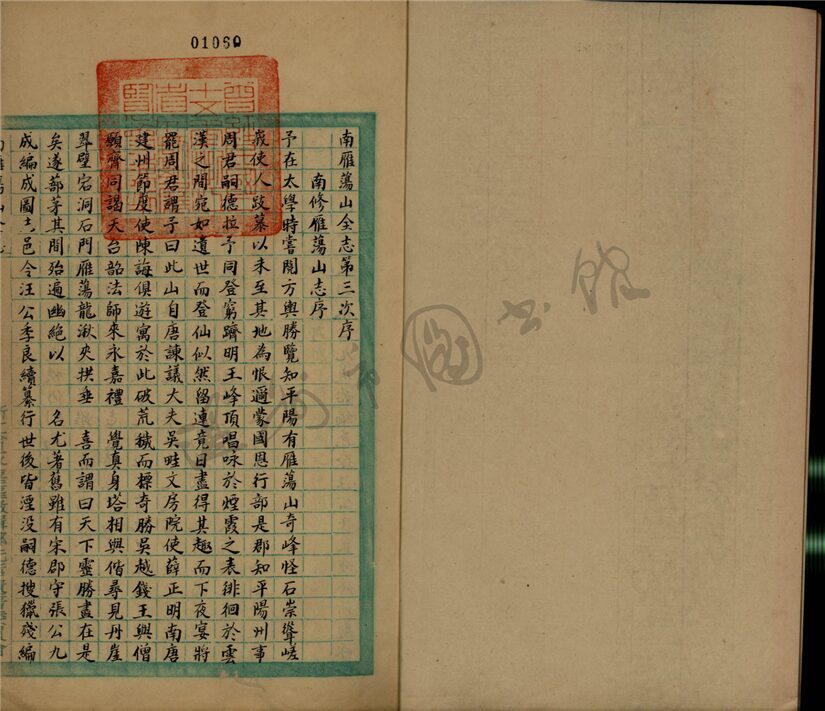 01060
南雁蕩山全志第三次序
南修雁蕩山志序
予在太學時嘗閱方輿勝覽知平陽有雁蕩山奇峰怪石崇聳嵯
峩使人跂慕以未至其地為恨遇蒙國恩行部是郡知平陽州事
周君嗣德拉予同登窮躋明王峰頂唱咏於煙霞之表徘徊於雲
漢之間宛如遺世而登仙似然留連竟日盡得其趣而下夜宴將
罷周君謂予曰此山自唐諫議大夫吳畦文房院使薛正明南唐
建州節度使陳誨俱遊寓於此破荒穢而標奇勝吳越錢王與僧
願齊同謁天台韶法師來永嘉禮 覺真身塔相與偕尋見丹崖
翠壁宕洞石門雁蕩龍湫夾拱垂 喜而謂曰天下靈勝盡在是
矣遂蔀茅其間殆遍幽絕以 名尤著舊雖有宋郡守張公九
成編成圖志邑令汪公季良續纂行世後皆湮没嗣德搜獵殘編
圖書館